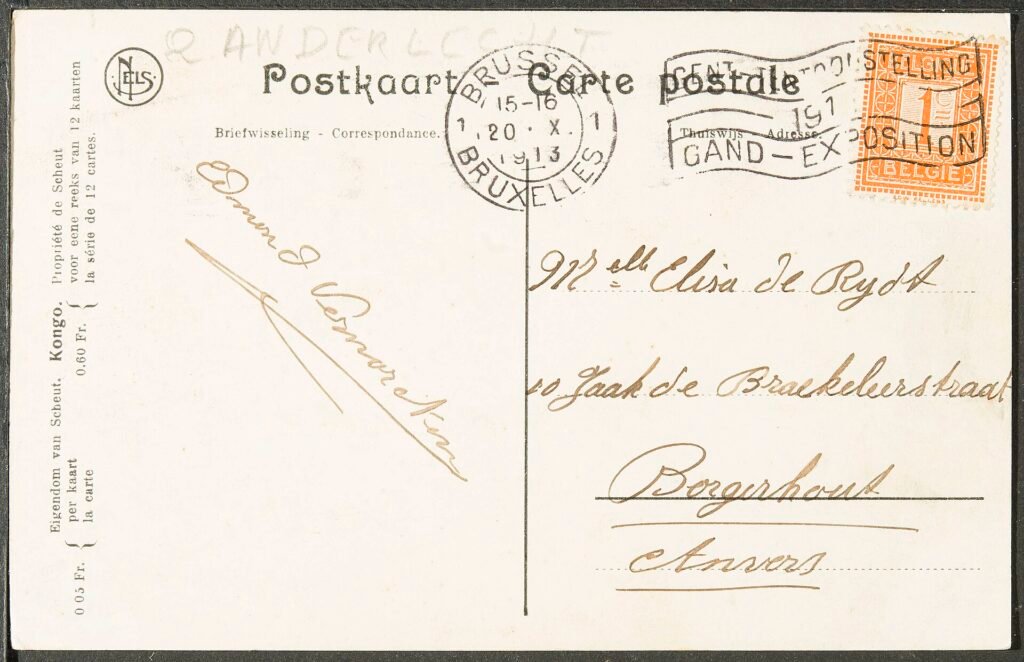 2 ANDERLECHT
NELS
Postkaart Carte postale
Briefwisseling - Correspondance. Thuiswijs - Adresse.
BRUSSEL
1 15-16 1
20 · X.
1913
BRUXELLES
GENT - TENTOONSTELLING
191
GAND-EXPOSITION
1
BELGIE
Edmond
Mr elle Elisa de Rydt
10 Jaak de Braekeleerstraat
Borgerhout
Anvers
Eigendom van Scheut. Kongo. Propriété de Scheut
0 05 Fr. { per kaart 0.60 Fr. { voor eene reeks van 12 kaarten
la carte la série de 12 cartes.